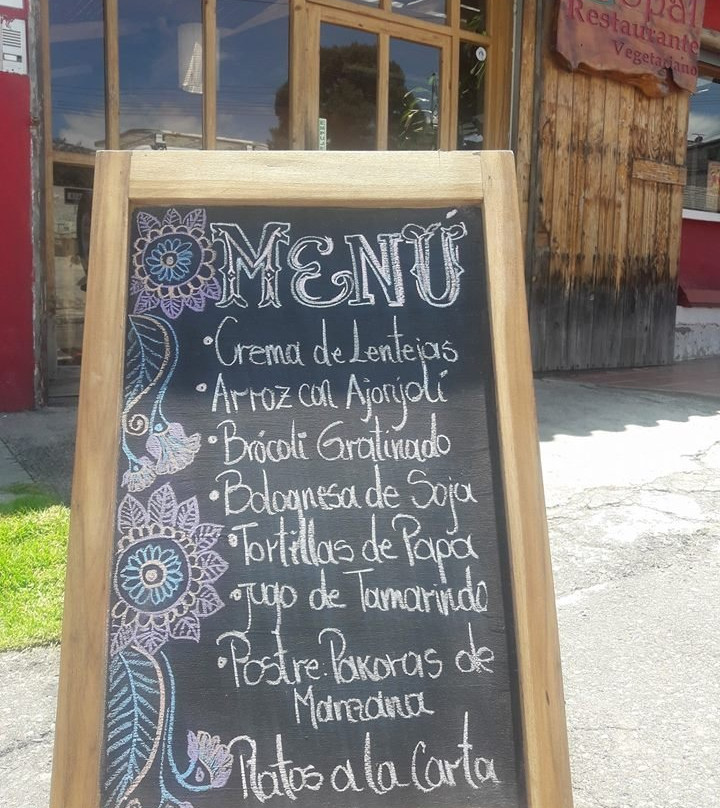 Restaurante
Vegetariano
MENÚ
• Crema de Lentejas
• Arroz con Ajonjolí
• Brócoli Gratinado
• Bolognesa de Soja
• Tortillas de Papa
• Jugo de Tamarindo
• Postre: Pakoras de
Manzana
Platos a la Carta